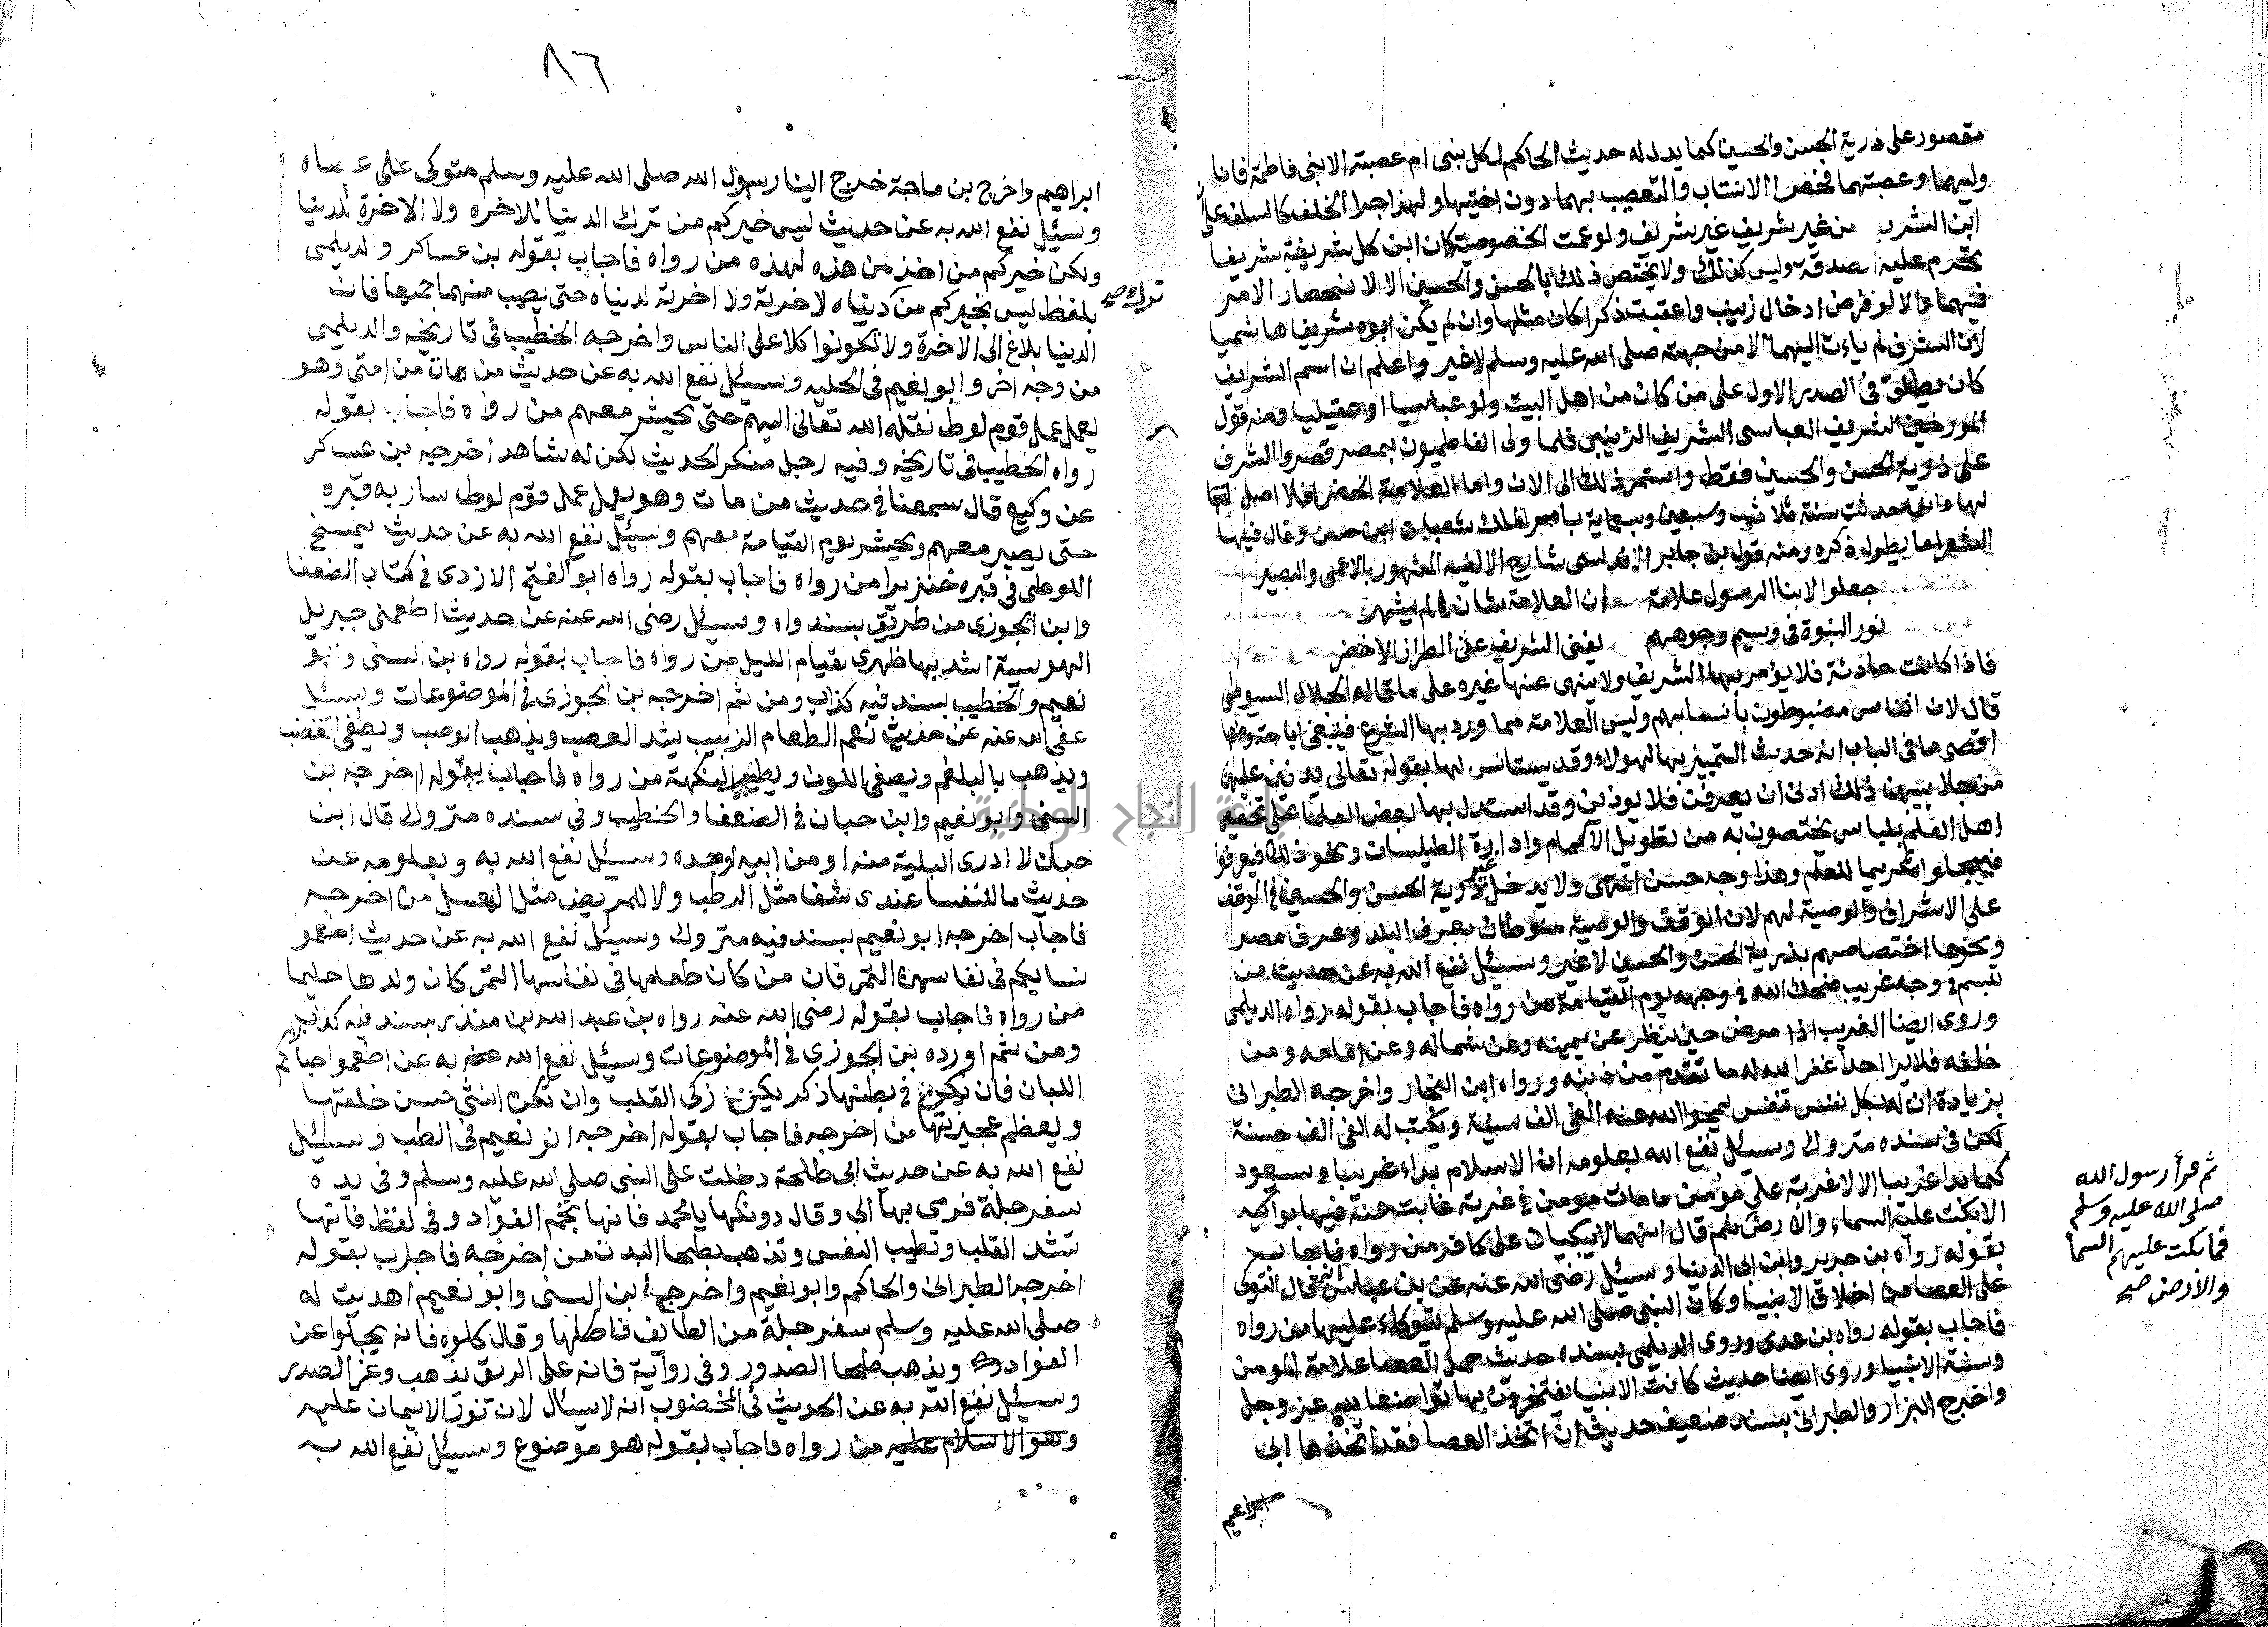 مقصور على ذرية الحسن والحسين كما يدل له حديث الحاكم لكل بنى ام عصبة الا ابنى فاطمة فانا
وليهما وعصبتهما فخص الانتساب والتعصيب بهما دون اختيها ولهذا جرا الخلف كالسلف على
ابن الشريفة من غير شريف غير شريف ولو عمت الخصوصية كان ابن كل شريفة شريفا
تحرم عليه الصدقة وليس كذلك ولا يختص ذلك بالحسن والحسين الا لانحصار الامر
فيهما والا لو فرض ادخال زينب واعقبت ذكرا كان مثلها وان لم يكن ابوه شريفا هاشميا
لان الشرف لم يات اليهما الا من جهته صلى الله عليه وسلم لا غير واعلم ان اسم الشريف
كان يطلق فى الصدر الاول على من كان من اهل البيت ولو عباسيا او عقيليا ومنه قول
المورخين الشريف العباسى الشريف الزينبى فلما ولى الفاطميون بمصر قصروا الشرف
على ذرية الحسن والحسين فقط واستمر ذلك الى الان واما العلامة الخضرا فلا اصل لها
لها وانما حدثت سنة ثلاث وسبعين وسبعماية بامر الملك شعبان ابن حسن وقال فيها
الشعرا ما يطول ذكره ومنه قول بن جابر الاندلسى شارح الالفيه المشهور بالاعمى والبصير
جعلوا لابنا الرسول علامة ان العلامة شان من لم يشهر
نور النبوة فى وسيم وجوههم يغنى الشريف عن الطراز الاخضر
فاذا كانت حادثة فلا يؤمر بها الشريف ولا ينهى عنها غيره على ما قاله الجلال السيوطى
قال لان الناس مضبوطون بانسابهم وليس العلامة مما ورد بها الشرع فينبغى اباحة ومنها
اقصى ما فى الباب انه حديث التمييز بها لهولاء وقد يستانس لها بقوله تعالى يدنين عليهن
من جلابيبهن ذلك ادنى ان يعرفن فلا يوذين وقد استدل بها بعض العلما على تخصيص
اهل العلم بلباس يختصون به من تطويل الاكمام وادارة الطيلسان ونحو ذلك فيعرفوا
فيبجلوا تكريما للعلم وهذا وجه حسن انتهى ولا يدخل غير ذرية الحسن والحسين فى الوقف
على الاشراف والوصية لهم لان الوقف والوصية منوطان بعرف البلد وعرف مصر
ونحوها اختصاصهم بذرية الحسن والحسين لا غير وسيئل نفع الله به عن حديث من
تبسم فى وجه غريب ضحك الله فى وجهه يوم القيامة من رواه فاجاب بقوله رواه الديلمى
وروى ايضا الغريب اذا مرض حين ينظر عن يمينه وعن شماله وعن امامه ومن
خلفه فلا يرا احدا غفر الله له ما تقدم من ذنبه ورواه ابن النجار واخرجه الطبرانى
بزيادة ان له بكل نفس تنفس يمحوا الله عنه الفى الف سيئة ويكتب له الفى الف حسنة
لكن فى سنده متروك وسيئل نفع الله بعلومه ان الاسلام بداء غريبا وسيعود
كما بدا غريبا الا لا غربة على مؤمن ما مات مومن فى غربة غابت عنه فيها بواكيه
الا بكت عليه السماء والارض ثم قال انهما لا يبكيان على كافر من رواه فاجاب
بقوله رواه بن جرير وابن ابى الدنيا وسيئل رضى الله عنه عن بن عباس انه قال التوكى
على العصا من اخلاق الانبيا وكان النبى صلى الله عليه وسلم يتوكاء عليها من رواه
فاجاب بقوله رواه بن عدى وروى الديلمى بسنده حديث حمل العصا علامة المومن
وسنة الانبيا وروى ايضا حديث كانت الانبيا يفتخرون بها تواضعا لله عز وجل
واخرج البزار والطبرانى بسند ضعيف حديث ان اتخذ العصا فقد اتخذها ابى
ابراهيم
ثم قرأ رسول الله
صلى الله عليه وسلم
فما بكت عليهم السما
والارض صح
٨٦
ابراهيم واخرج بن ماجة خرج الينا رسول الله صلى الله عليه وسلم متوكى على عصاه
وسيئل نفع الله به عن حديث ليس خيركم من ترك الدنيا للاخره ولا الاخرة للدنيا
ولكن خيركم من اخذ من هذه لهذه من رواه فاجاب بقوله بن عساكر والديلمى
بلفظ ليس بخيركم من دنياه لاخرته ولا اخرته لدنياه حتى يصيب منهما جميعا فان
ترك صح
الدنيا بلاغ الى الاخرة ولا تكونوا كلا على الناس واخرجه الخطيب فى تاريخه والديلمى
من وجه اخر وابو نعيم فى الحليه وسيئل نفع الله به عن حديث من مات من امتى وهو
يعمل عمل قوم لوط نقله الله تعالى اليهم حتى يحيشر معهم من رواه فاجاب بقوله
رواه الخطيب فى تاريخه وفيه رجل منكر الحديث لكن له شاهد اخرجه بن عساكر
عن وكيع قال سمعنا فى حديث من مات وهو يعمل عمل قوم لوط سار به قبره
حتى يصير معهم ويحيشر يوم القيامة معهم وسيئل نفع الله به عن حديث يمسخ
اللوطى فى قبره خنزيرا من رواه فاجاب بقوله رواه ابو الفتح الازدى فى كتاب الضعفا
وابن الجوزى من طريق بسند واه وسيئل رضى الله عنه عن حديث اطعمنى جبريل
الهريسة اشد بها ظهرى لقيام الليل من رواه فاجاب بقوله رواه بن السنى وابو
نعيم والخطيب بسند فيه كذاب ومن ثم اخرجه بن الجوزى فى الموضوعات وسيئل
عفى الله عنه عن حديث نعم الطعام الزبيب يشد العصب ويذهب الوصب ويطفى الغضب
ويذهب بالبلغم ويصفى اللون ويطيب النكهة من رواه فاجاب بقوله اخرجه بن
السنى وابو نعيم وابن حبان فى الضعفا والخطيب وفى سنده متروك قال ابن
حبان لا ادرى البلية منه او من ابيه او جده وسيئل نفع الله به وبعلومه عن
حديث ما للنفسا عندى شفا مثل الرطب ولا للمريض مثل العسل من اخرجه
فاجاب اخرجه ابو نعيم بسند فيه متروك وسيئل نفع الله به عن حديث اطعموا
نسايكم فى نفاسهن التمر فان من كان طعامها فى نفاسها التمر كان ولدها حليما
من رواه فاجاب بقوله رضى الله عنه رواه بن عبد الله بن منده بسند فيه كذاب
ومن ثم اورده بن الجوزى فى الموضوعات وسيئل نفع الله به عن اطعموا حبالاكم
اللبان فان يكن فى بطنها ذكر يكن زكى القلب وان تكن انثى حسن خلقتها
ويعظم عجيزتها من اخرجه فاجاب بقوله اخرجه ابو نعيم فى الطب وسيئل
نفع الله به عن حديث ابى طلحة دخلت على النبى صلى الله عليه وسلم وفى يده
سفرجلة فرمى بها الى وقال دونكها يا محمد فانها تجم الفواد وفى لفظ فانها
تشد القلب وتطيب النفس وتذهب بطخا البدن من اخرجه فاجاب بقوله
اخرجه الطبرانى والحاكم وابو نعيم واخرج ابن السنى وابو نعيم اهديت له
صلى الله عليه وسلم سفرجلة من الطايف فاكلها وقال كلوه فانه يجلوا عن
الفواد ويذهب طخا الصدور وفى رواية فانه على الريق يذهب وغر الصدر
وسيئل نفع الله به عن الحديث فى المخضوب انه لا يسئال لان نور الايمان عليه
وهو الاسلام عليه من رواه فاجاب بقوله هو موضوع وسيئل نفع الله به